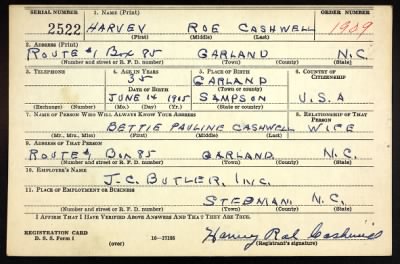 SERIAL NUMBER 1. NAME (Print) ORDER NUMBER
2522 HARVEY ROE CASHWELL 1909
(First) (Middle) (Last)
2. ADDRESS (Print)
ROUTE #1 BOX 85 GARLAND N.C.
(Number and street or R. F. D. number) (Town) (County) (State)
3. TELEPHONE 4. AGE IN YEARS 5. PLACE OF BIRTH 6. COUNTRY OF CITIZENSHIP
35 GARLAND
DATE OF BIRTH (Town or county)
JUNE 14 1905 SAMPSON U.S.A
(Exchange) (Number) (Mo.) (Day) (Yr.) (State or country)
7. NAME OF PERSON WHO WILL ALWAYS KNOW YOUR ADDRESS 8. RELATIONSHIP OF THAT PERSON
BETTIE PAULINE CASHWELL WIFE
(Mr., Mrs., Miss) (First) (Middle) (Last)
9. ADDRESS OF THAT PERSON
ROUTE #1 BOX 85 GARLAND N.C.
(Number and street or R. F. D. number) (Town) (County) (State)
10. EMPLOYER'S NAME
J.C. BUTLER, INC.
11. PLACE OF EMPLOYMENT OR BUSINESS
STEDMAN, N.C.
(Number and street or R. F. D. number) (Town) (County) (State)
I AFFIRM THAT I HAVE VERIFIED ABOVE ANSWERS AND THAT THEY ARE TRUE.
REGISTRATION CARD
D. S. S. Form 1 (over) 16—17105 (Registrant's signature)